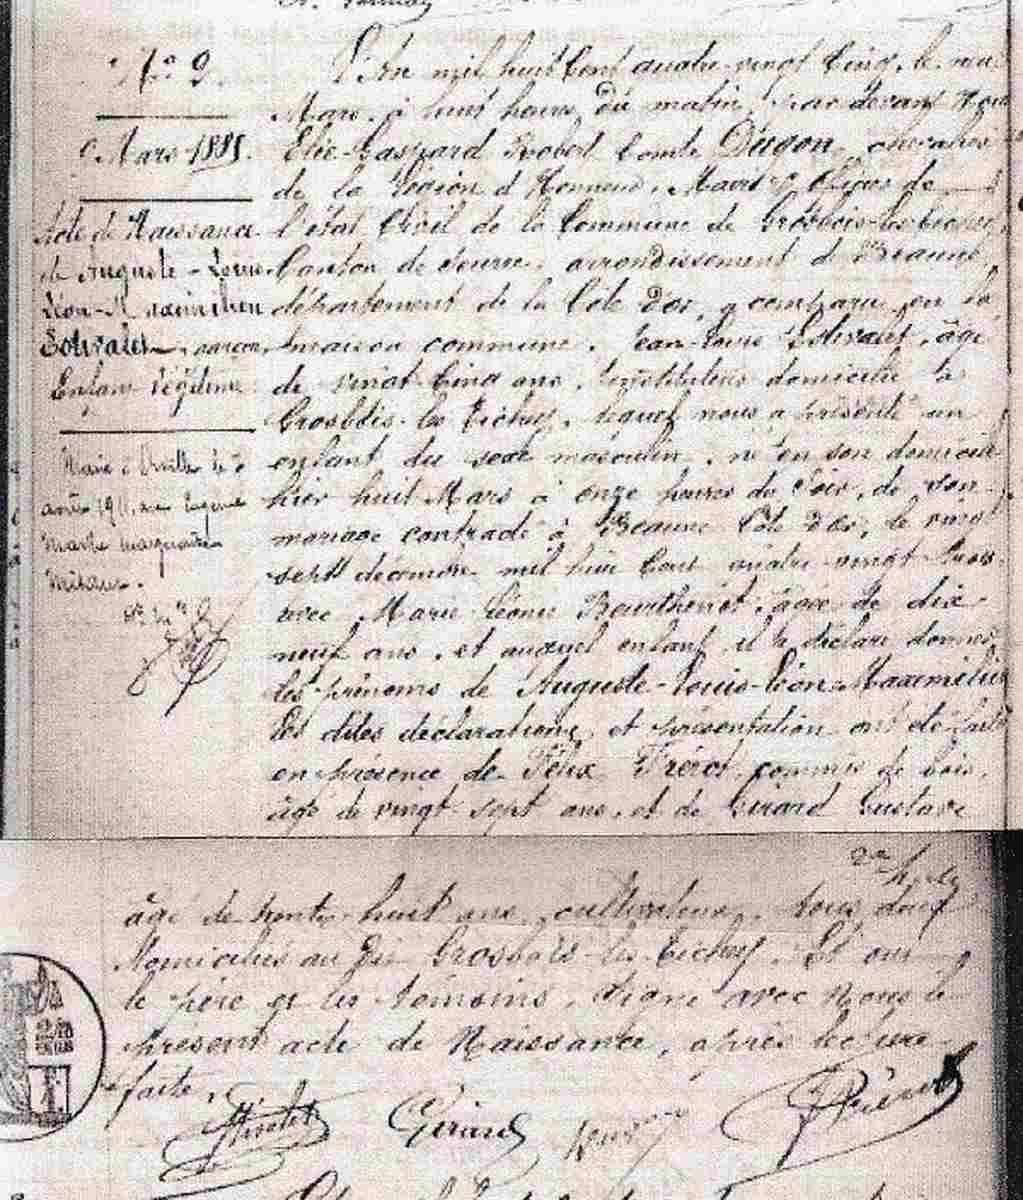 N° 9
9 Mars 1885.
Acte de Naissance
de Auguste-Louis
Léon-Maximilien
garçon
Enfant légitime
Marié à le
1911, avec Eugénie
Marie Marguerite
L'An mil huit Cent quatre-vingt Cinq, le neuf
Mars, à huit heures du matin, par devant Nous
Elie-Gaspard Robert Comte Dagon, chevalier
de la Légion d'Honneur, Maire, officier de
l'état Civil de la Commune de Grosbois-les-Tichey,
Canton de Seurre, arrondissement de Beaune,
département de la Côte d'or, a comparu en la
maison commune, Jean-Louis âgé
de vingt Cinq ans, Instituteur domicilié à
Grosbois-les-Tichey, lequel nous a présenté un
enfant du sexe masculin, né en son domicile
hier huit Mars à onze heures du Soir, de son
mariage contracté à Beaune Côte d'or, le vingt
sept décembre mil huit Cent quatre-vingt trois
avec Marie Léonie âgée de dix
neuf ans, et auquel enfant il a déclaré donner
les prénoms de Auguste-Louis-Léon-Maximilien
Les dites déclarations et présentation ont été faites
en présence de Félix Frérot, commis de bois,
âgé de vingt sept ans, et de Girard Gustave
2me
âgé de trente-huit ans, cultivateur, tous deux
domiciliés au dit Grosbois-les-Tichey. Et ont
le père et les témoins, signé avec Nous le
présent acte de Naissance, après lecture
faite.
Girard